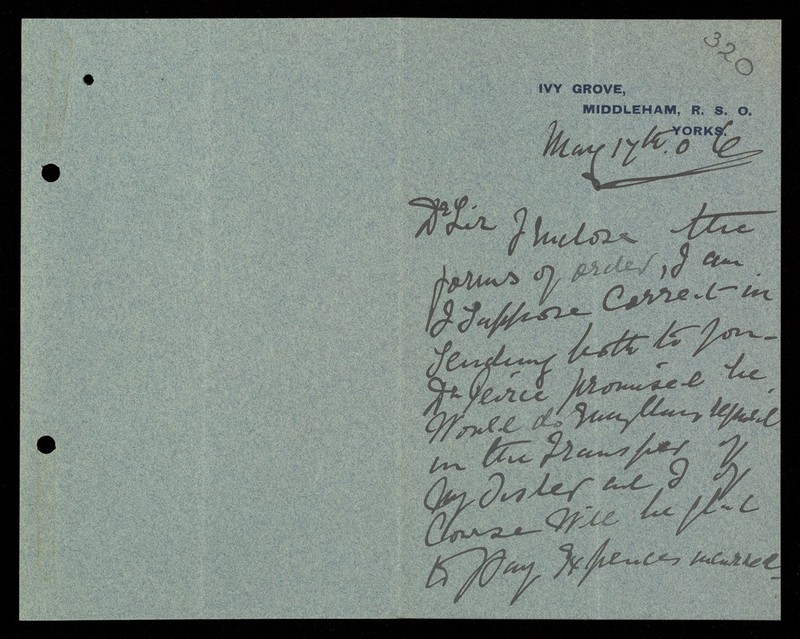 320
IVY GROVE,
MIDDLEHAM, R. S. O.
YORKS.
May 17th. 06
Dr Sir I Inclose the
forms of order, I am
I Suppose Correct in
Sending both to you –
Dr Peirce promised he
Would do Everything required
in the Transfer of
My Sister and I of
Course Will be glad
to Pay Expences incurred